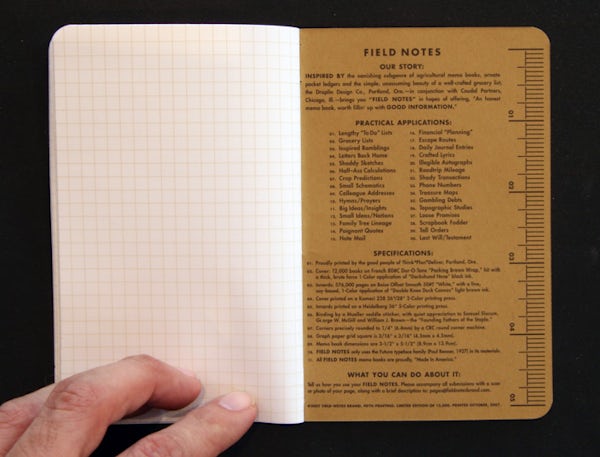 FIELD NOTES
OUR STORY:
INSPIRED BY the vanishing subgenre of agricultural memo books, ornate
pocket ledgers and the simple, unassuming beauty of a well-crafted grocery list,
the Draplin Design Co., Portland, Ore.—in conjunction with Coudal Partners,
Chicago, Ill.—brings you "FIELD NOTES" in hopes of offering, "An honest
memo book, worth fillin' up with GOOD INFORMATION."
PRACTICAL APPLICATIONS:
01. Lengthy "To Do" Lists
02. Grocery Lists
03. Inspired Ramblings
04. Letters Back Home
05. Shoddy Sketches
06. Half-Ass Calculations
07. Crop Predictions
08. Small Schematics
09. Colleague Addresses
10. Hymns/Prayers
11. Big Ideas/Insights
12. Small Ideas/Notions
13. Family Tree Lineage
14. Poignant Quotes
15. Hate Mail
16. Financial "Planning"
17. Escape Routes
18. Daily Journal Entries
19. Crafted Lyrics
20. Illegible Autographs
21. Roadtrip Mileage
22. Shady Transactions
23. Phone Numbers
24. Treasure Maps
25. Gambling Debts
26. Topographic Studies
27. Loose Promises
28. Scrapbook Fodder
29. Tall Orders
30. Last Will/Testament
SPECIFICATIONS:
01. Proudly printed by the good people of Think*Plan*Deliver, Portland, Ore.
02. Cover: 12,000 books on French 80#C Dur-O-Tone "Packing Brown Wrap," hit with
a thin, brute force 1-Color application of "Dachshund Nose" black ink.
03. Innards: 576,000 pages on Boise Offset Smooth 50#T "White," with a fine,
soy-based, 1-Color application of "Double Knee Duck Canvas" light brown ink.
04. Cover printed on a Komori 228 26"/28" 2-Color printing press.
05. Innards printed on a Heidelberg 36" 2-Color printing press.
06. Binding by a Mueller saddle stitcher, with quiet appreciation to Samuel Slocum,
George W. McGill and William J. Brown—the "Founding Fathers of the Staple."
07. Corners precisely rounded to 1/4" (6.4mm) by a CRC round corner machine.
08. Graph paper grid square is 3/16" x 3/16" (4.7mm x 4.7mm).
09. Memo book dimensions are 3-1/2" x 5-1/2" (8.9cm x 13.9cm).
10. FIELD NOTES only uses the Futura typeface family (Paul Renner, 1927) in its materials.
11. All FIELD NOTES memo books are proudly, "Made in America."
WHAT YOU CAN DO ABOUT IT:
Tell us how you use your FIELD NOTES. Please accompany all submissions with a scan
or photo of your page, along with a brief description to: pages@fieldnotesbrand.com.
©2007 FIELD NOTES BRAND. PRINTING. LIMITED EDITION OF 12,000. PRINTED OCTOBER, 2007.
01
02
03
04
05